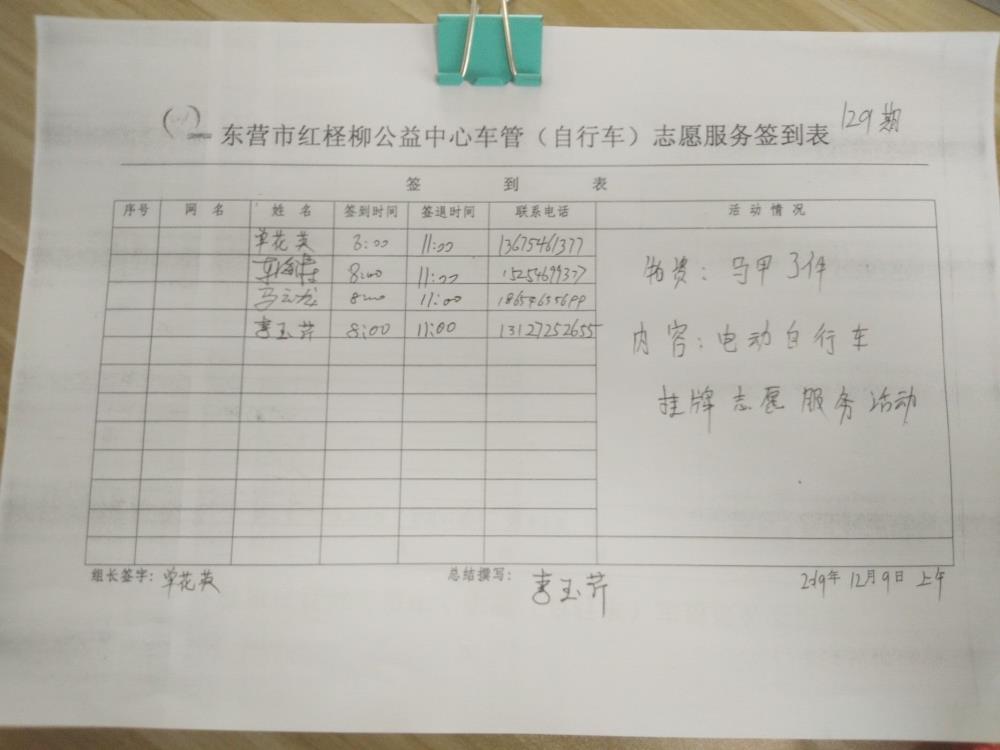 东营市红柽柳公益中心车管（自行车）志愿服务签到表 129期
签 到 表
序号 网 名 姓 名 签到时间 签退时间 联系电话 活 动 情 况
单花英 8:00 11:00 13675461377
8:00 11:00 15254699377
马云龙 8:00 11:00 18654655699
李玉芹 8:00 11:00 13127252655
物资：马甲3件
内容：电动自行车
挂牌志愿服务活动
组长签字：单花英 总结撰写：李玉芹 2019年12月9日 上午